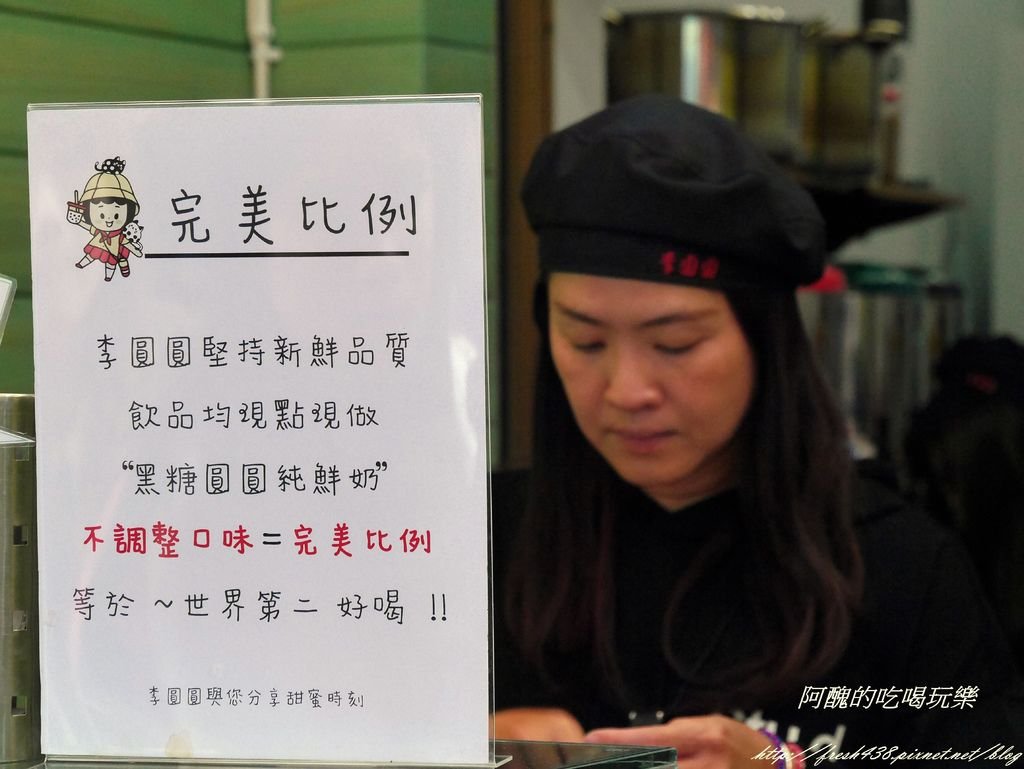 完美比例
李圓圓堅持新鮮品質
飲品均現點現做
“黑糖圓圓純鮮奶”
不調整口味=完美比例
等於 ~世界第二 好喝 !!
李圓圓與您分享甜蜜時刻
李圓圓
阿醜的吃喝玩樂
http://fresh438.pixnet.net/blog